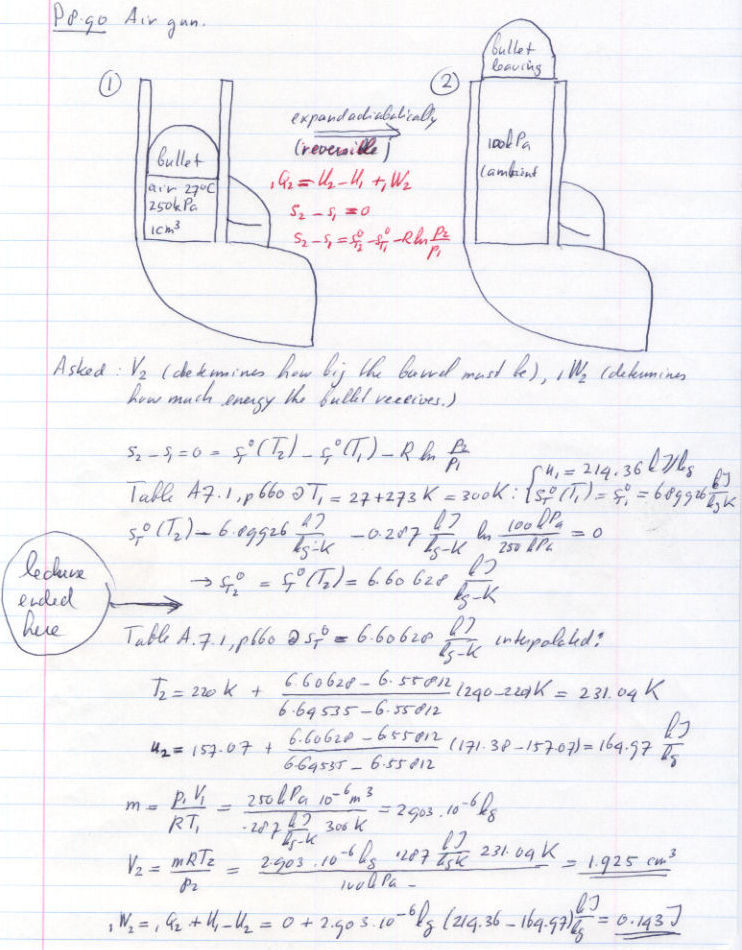 P8.90 Air gun.
①
②
bullet
leaving
expand adiabatically
(reversible)
bullet
100kPa
(ambient
air 27°C
250kPa
1cm³
₁Q₂ = U₂ - U₁ + ₁W₂
s₂ - s₁ = 0
s₂ - s₁ = s°T₂ - s°T₁ - R ln p₂/p₁
Asked: V₂ (determines how big the barrel must be), ₁W₂ (determines
how much energy the bullet receives.)
s₂ - s₁ = 0 = s°T(T₂) - s°T(T₁) - R ln p₂/p₁
Table A7.1, p660 @ T₁ = 27+273 K = 300K: { u₁ = 214.36 kJ/kg
s°T(T₁) = s°T₁ = 6.89926 kJ/kg-K
s°T(T₂) - 6.89926 kJ/kg-K - 0.287 kJ/kg-K ln 100kPa/250kPa = 0
→ s°T₂ = s°T(T₂) = 6.60628 kJ/kg-K
lecture
ended
here
Table A.7.1, p660 @ s°T = 6.60628 kJ/kg-K interpolated:
T₂ = 220 K + (6.60628 - 6.55812)/(6.64535 - 6.55812) (240-220)K = 231.04 K
u₂ = 157.07 + (6.60628 - 6.55812)/(6.64535 - 6.55812) (171.38 - 157.07) = 164.97 kJ/kg
m = p₁V₁/RT₁ = 250kPa 10⁻⁶ m³/.287 kJ/kg-K 300K = 2.903. 10⁻⁶ kg
V₂ = mRT₂/p₂ = 2.903 .10⁻⁶ kg .287 kJ/kgK 231.04 K/100kPa = 1.925 cm³
₁W₂ = ₁Q₂ + U₁ - U₂ = 0 + 2.903.10⁻⁶ kg (214.36 - 164.97) kJ/kg = 0.143 J